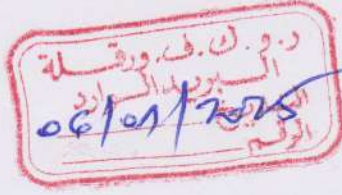 د. و. ك. ف. ورقلة
البريد الوارد
06/01/2025
الرقم